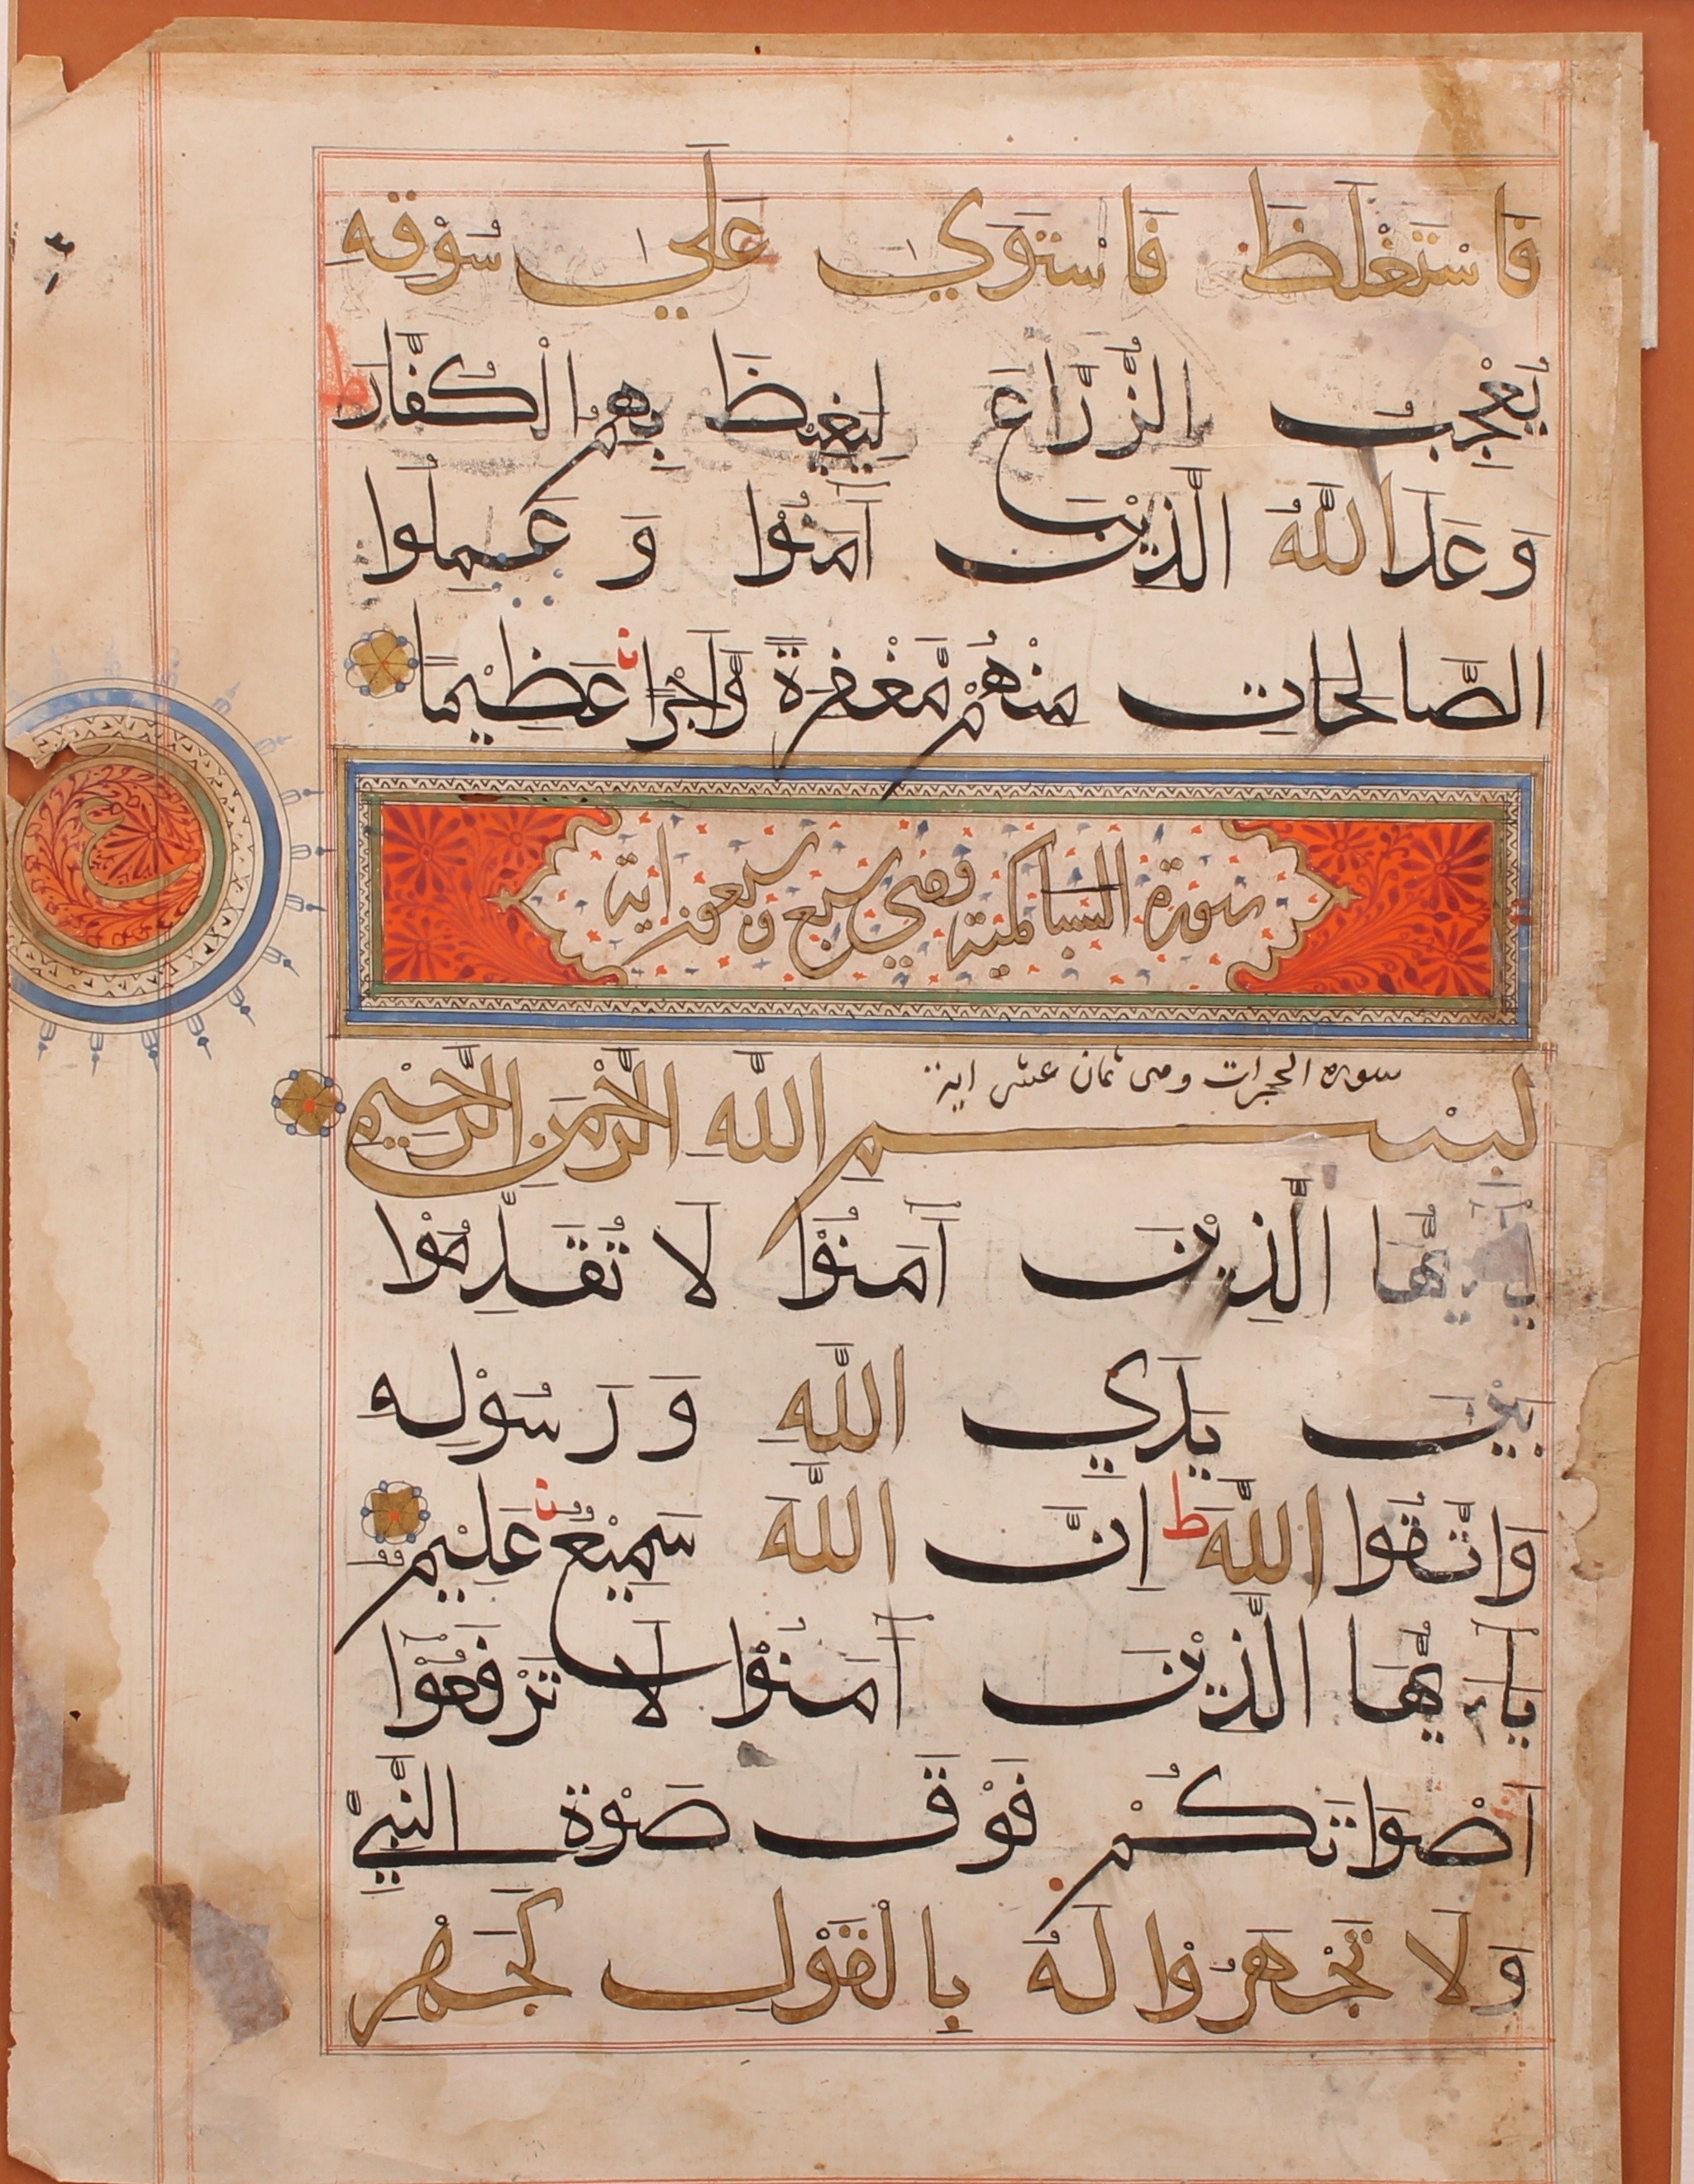 فَاسْتَغْلَظَ فَاسْتَوَي عَلَي سُوْقِهِ
يُعْجِبُ الزُّرَّاعَ لِيَغِيْظَ بِهِمُ الْكُفَّارَ ط
وَعَدَ اللَّهُ الَّذِيْنَ آمَنُوْا وَ عَمِلُوا
الصَّالِحَاتِ مِنْهُمْ مَّغْفِرَةً وَّاَجْرًا عَظِيْمًا
ع
سورة السبا مكية وهي سبع وسبعون اية
سوره الحجرات وهى ثمان عشر ايه
بِسْمِ اللَّهِ الرَّحْمَنِ الرَّحِيْمِ
يَاءَيُّهَا الَّذِيْنَ آمَنُوْا لَا تُقَدِّمُوْا
بَيْنَ يَدَيِ اللَّهِ وَ رَسُوْلِه
وَاتَّقُوا اللَّهَ ط اِنَّ اللَّهَ سَمِيْعٌ عَلِيْمٌ
يَاءَيُّهَا الَّذِيْنَ آمَنُوْا لَا تَرْفَعُوْا
اَصْوَاتَكُمْ فَوْقَ صَوْةِ النَّبِيِّ
وَلَا تَجْهَرُوْا لَهُ بِالْقَوْلِ كَجَهْرِ